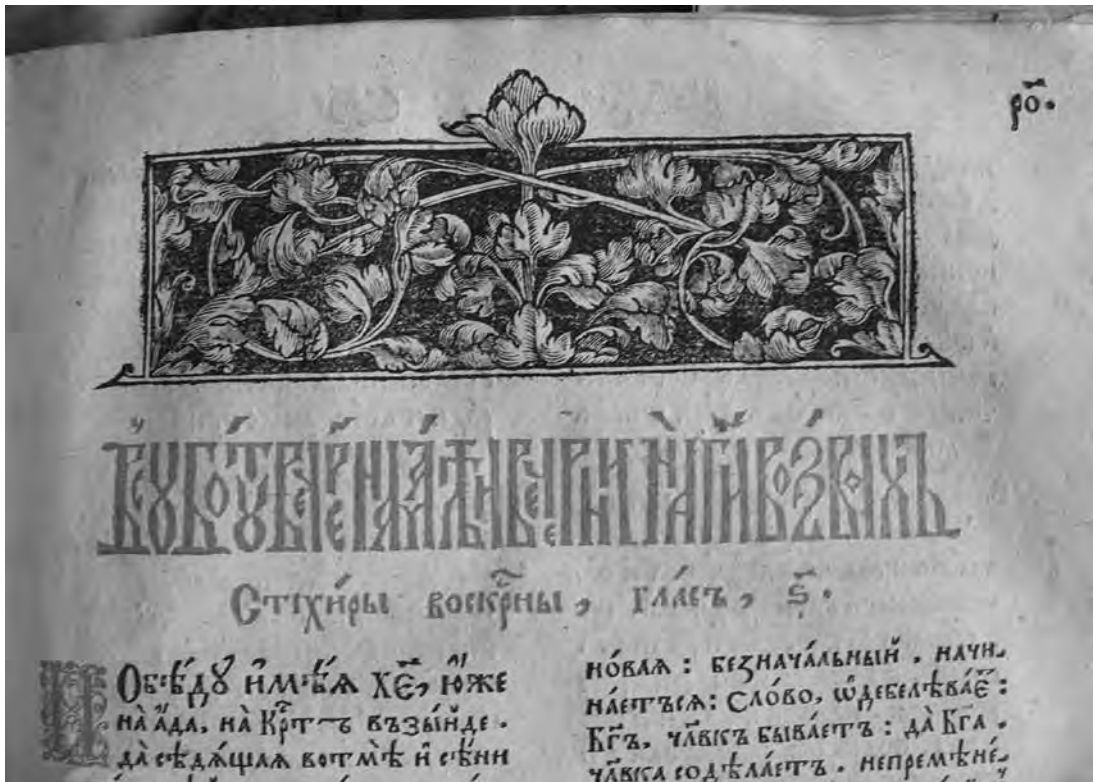 ро҃.
Въ сꙋбо́тꙋ на ма́лѣй вече́рни на̀ гдⷭ҇и возва́хъ
Стіхи́ры воскрⷭ҇ны, гла́съ, ѕ҃.
Побѣ́дꙋ и҆мѣ́ѧ хе҃, ю҆́же
на̀ а҆́да, на̀ Крⷭ҇тъ възы́йде .
да̀ сѣдѧ́щаѧ вотмѣ̀ и҆ сѣ́ни
но́ваѧ : безнача́льный . начи
на́етъсѧ : Сло́во, ѡ҆дебелѣва́е҃ :
Бг҃ъ, члв҃къ быва́етъ : да̀ Бг҃а .
члв҃ка содѣ́лаетъ . непремѣне́